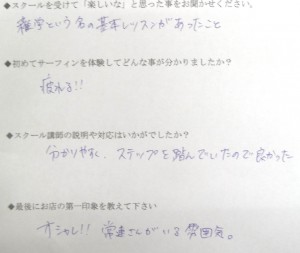 ◆スクールを受けて「楽しいな」と思った事をお聞かせください。
雑学という名の基本レッスンがあったこと
◆初めてサーフィンを体験してどんな事が分かりましたか？
疲れる!!
◆スクール講師の説明や対応はいかがでしたか？
分かりやすく、ステップを踏んでいたので良かった
◆最後にお店の第一印象を教えて下さい
オシャレ!! 常連さんがいる雰囲気。